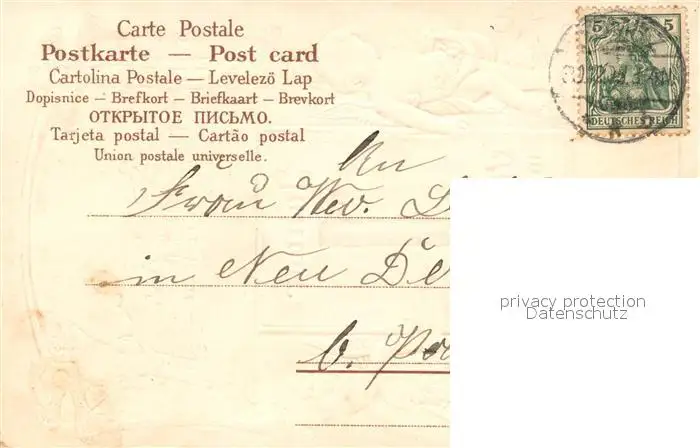 Carte Postale
Postkarte — Post card
Cartolina Postale — Levelező Lap
Dopisnice — Brefkort — Briefkaart — Brevkort
ОТКРЫТОЕ ПИСЬМО.
Tarjeta postal — Cartão postal
Union postale universelle.
5 5
DEUTSCHES REICH
An
Frau Wev.
in Neu
b.
privacy protection
Datenschutz